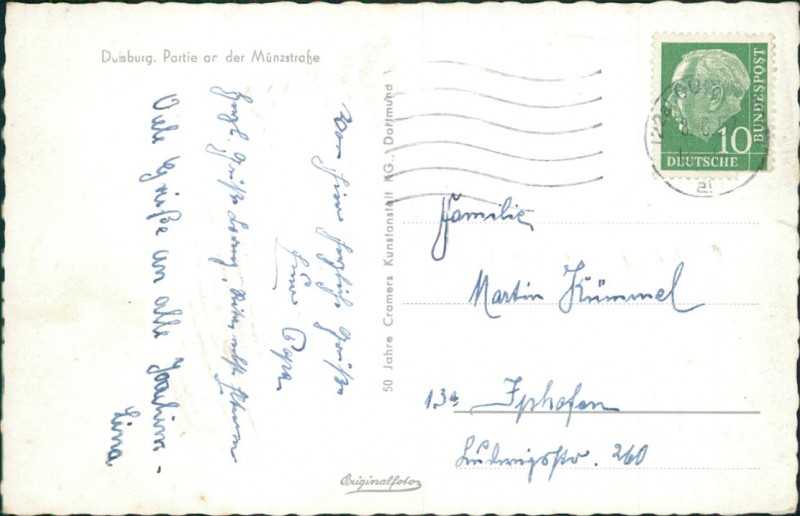 Duisburg. Partie an der Münzstraße
Von hier herzliche Grüße
Euer Papa
Herzl. Grüße
Viele Grüße an alle Joachim -
Lina
50 Jahre Cramers Kunstanstalt KG., Dortmund
10
DEUTSCHE
BUNDESPOST
Familie
Martin Kümmel
13a Iphofen
Ludwigsstr. 260
Originalfoto